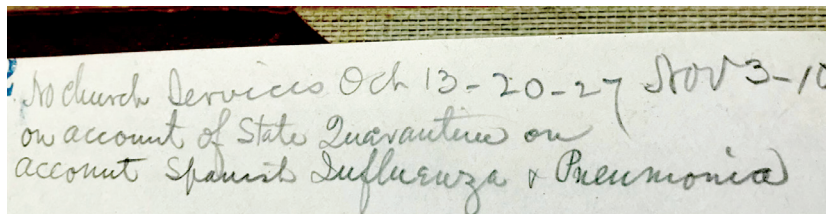 No church Services Oct 13-20-27 Nov 3-10
on account of State Quarantine on
account Spanish Influenza & Pneumonia